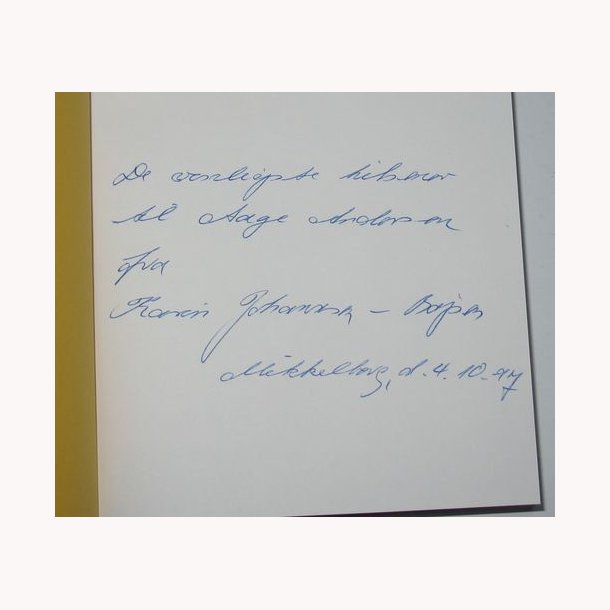 De venligste hilsener
til Aage Andersen
fra
Karin Johannsen - Bojsen
Mikkelborg, d. 4. 10. 97